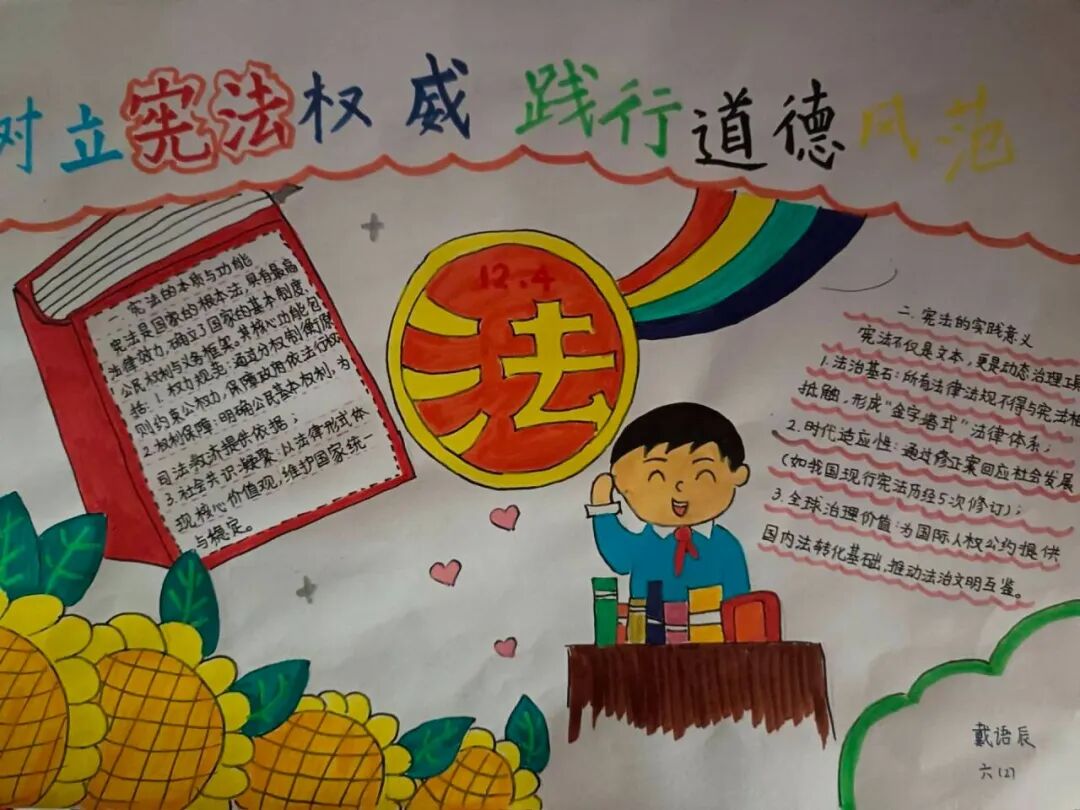 树立宪法权威 践行道德风范
12.4
法
一 宪法的本质与功能
宪法是国家的根本法,具有最高
法律效力,确立了国家的基本制度、
公民权利与义务框架。其核心功能包
括:1.权力规范:通过分权制衡原
则约束公权力,保障政府依法行权
2.权利保障:明确公民基本权利,为
司法救济提供依据;
3.社会共识凝聚:以法律形式体
现核心价值观,维护国家统一
与稳定。
二.宪法的实践意义
宪法不仅是文本,更是动态治理工具
1.法治基石:所有法律法规不得与宪法相
抵触,形成“金字塔式”法律体系;
2.时代适应性:通过修正案回应社会发展
(如我国现行宪法历经5次修订);
3.全球治理价值:为国际人权公约提供
国内法转化基础,推动法治文明互鉴。
戴语辰
六(2)